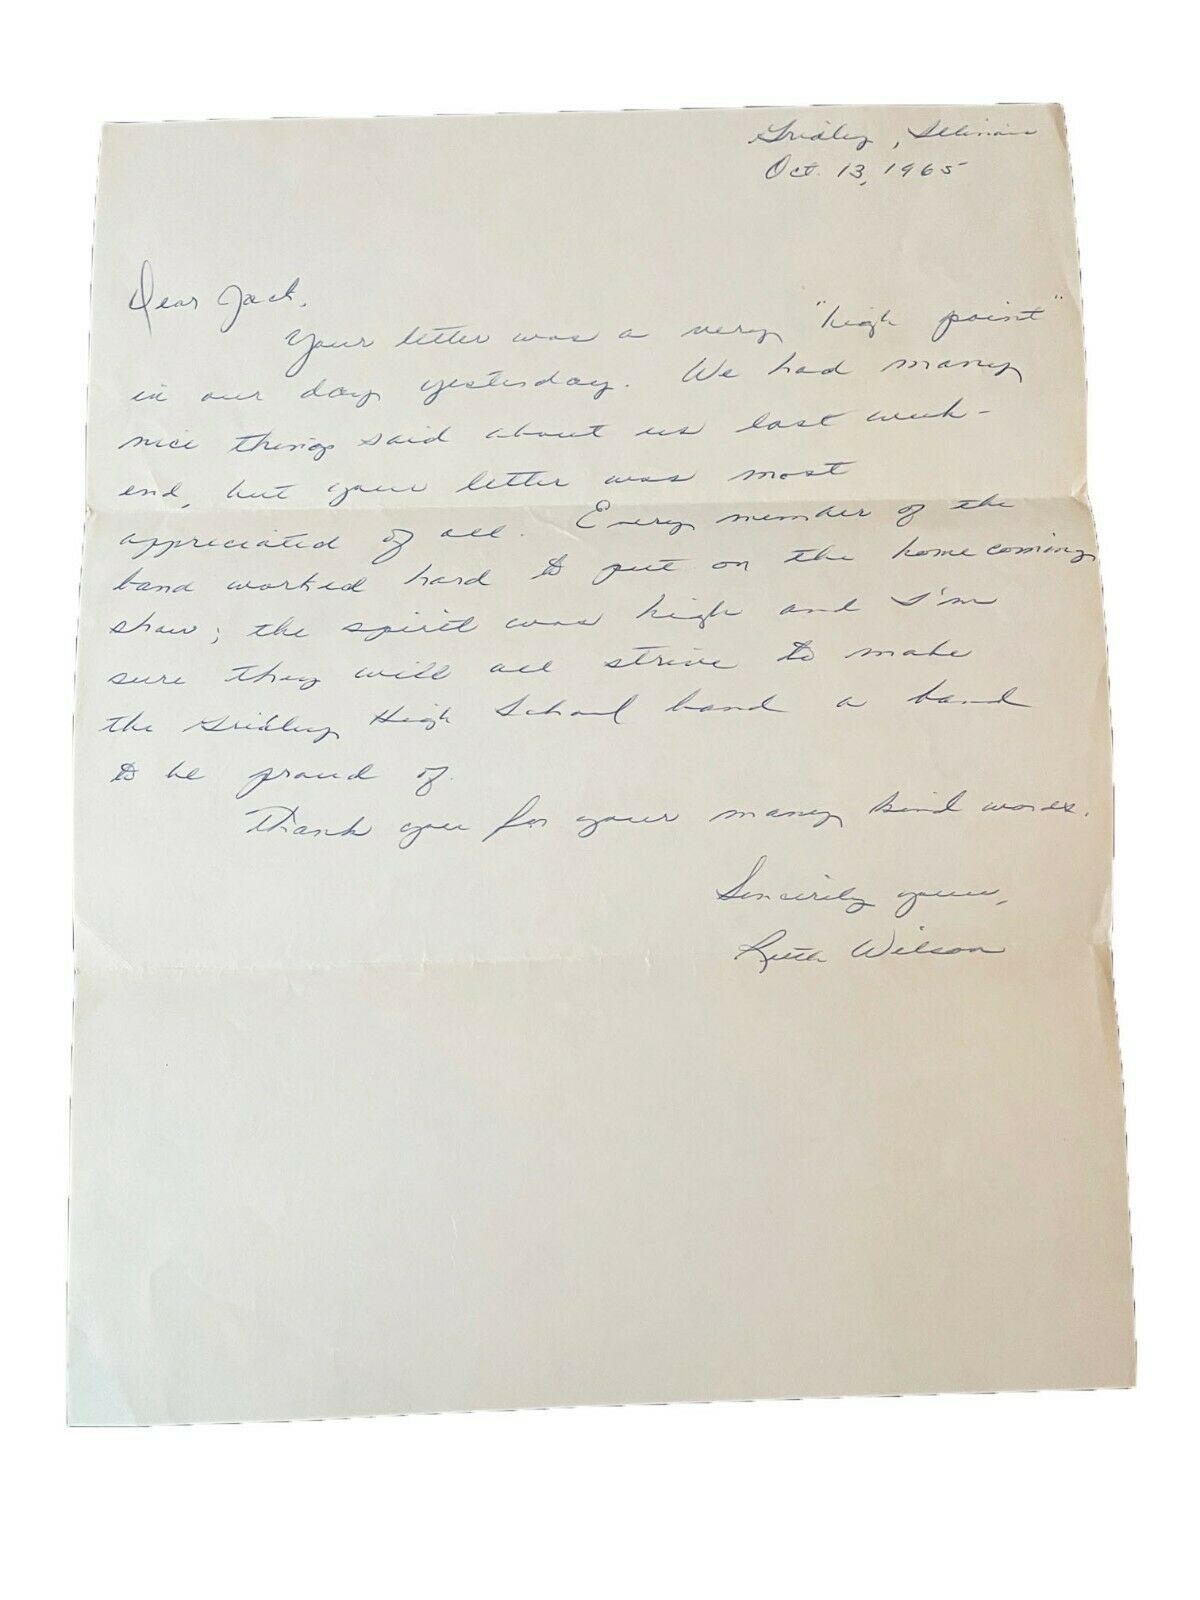 Gridley, Illinois
Oct. 13, 1965
Dear Jack,
Your letter was a very "high point"
in our day yesterday. We had many
nice things said about us last week-
end, but your letter was most
appreciated of all. Every member of the
band worked hard to put on the homecoming
show; the spirit was high and I'm
sure they will all strive to make
the Gridley High School band a band
to be proud of.
Thank you for your many kind words.
Sincerely yours,
Ruth Wilson